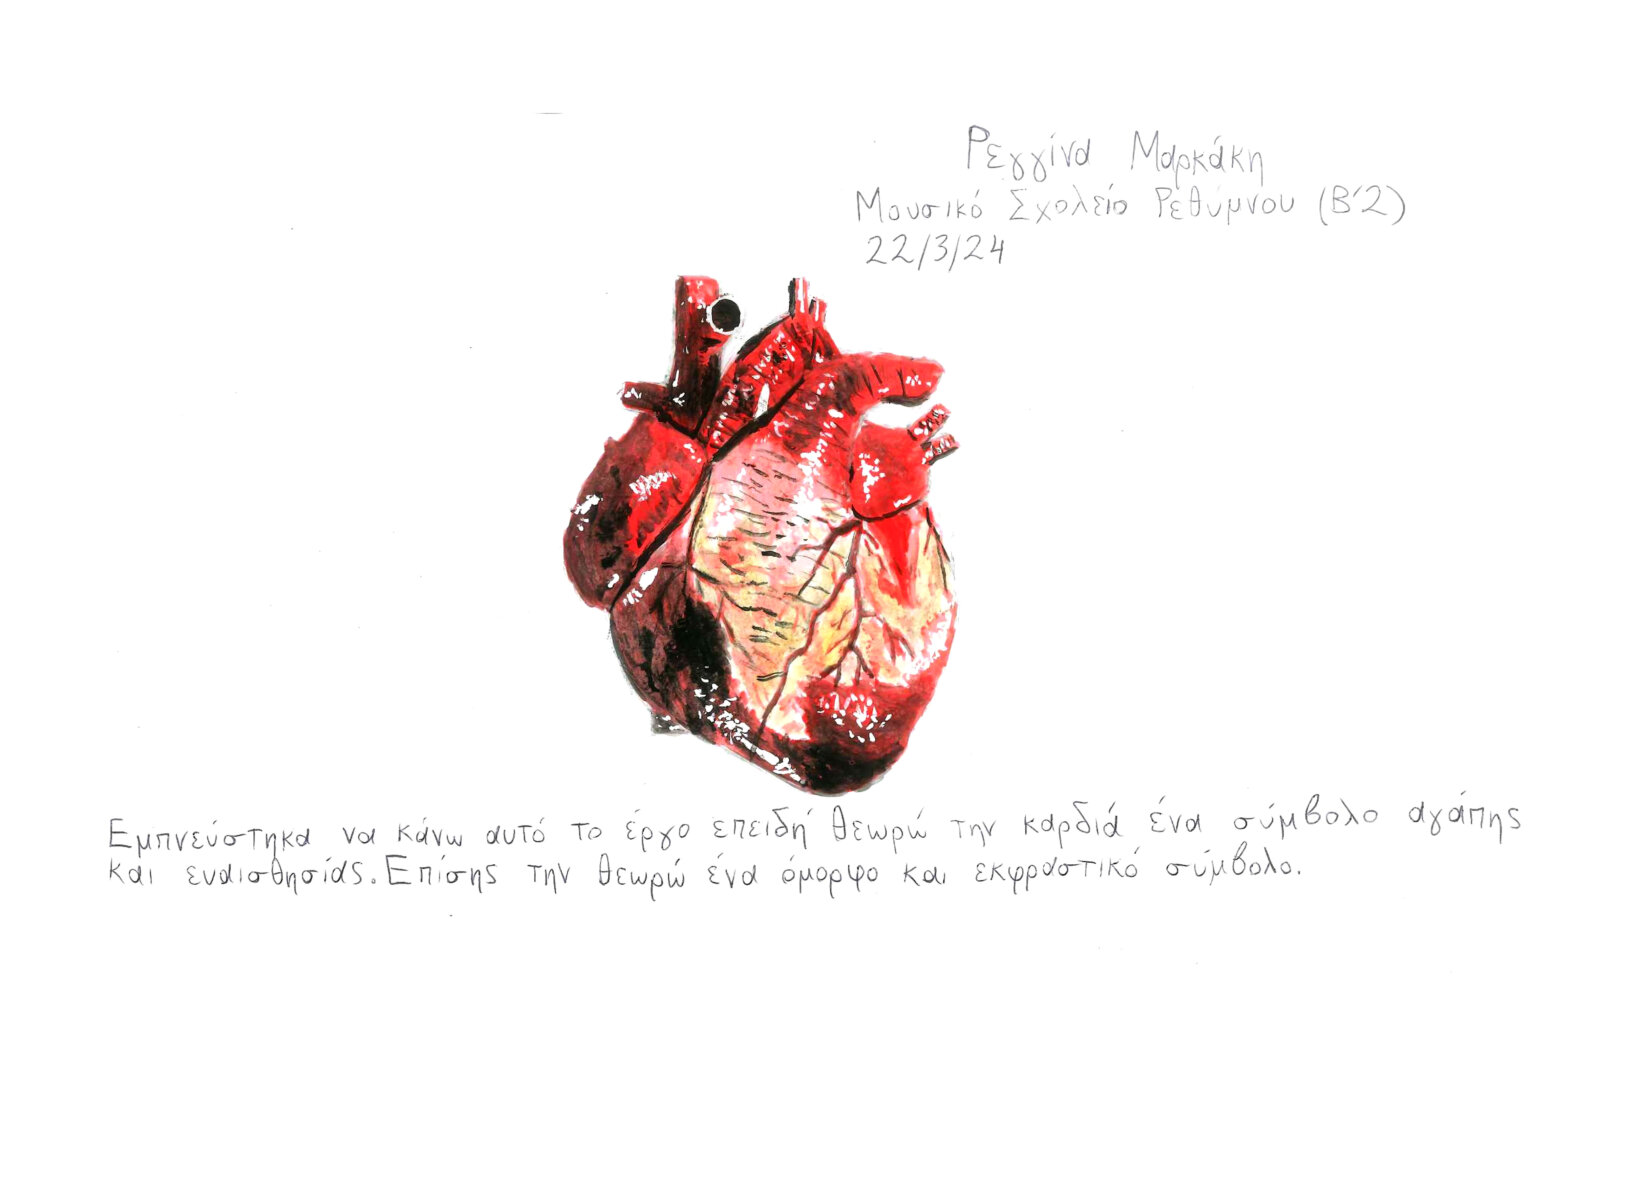 Ρεγγίνα Μαρκάκη
Μουσικό Σχολείο Ρεθύμνου (Β'2)
22/3/24
Εμπνεύστηκα να κάνω αυτό το έργο επειδή θεωρώ την καρδιά ένα σύμβολο αγάπης
και ευαισθησίας. Επίσης την θεωρώ ένα όμορφο και εκφραστικό σύμβολο.